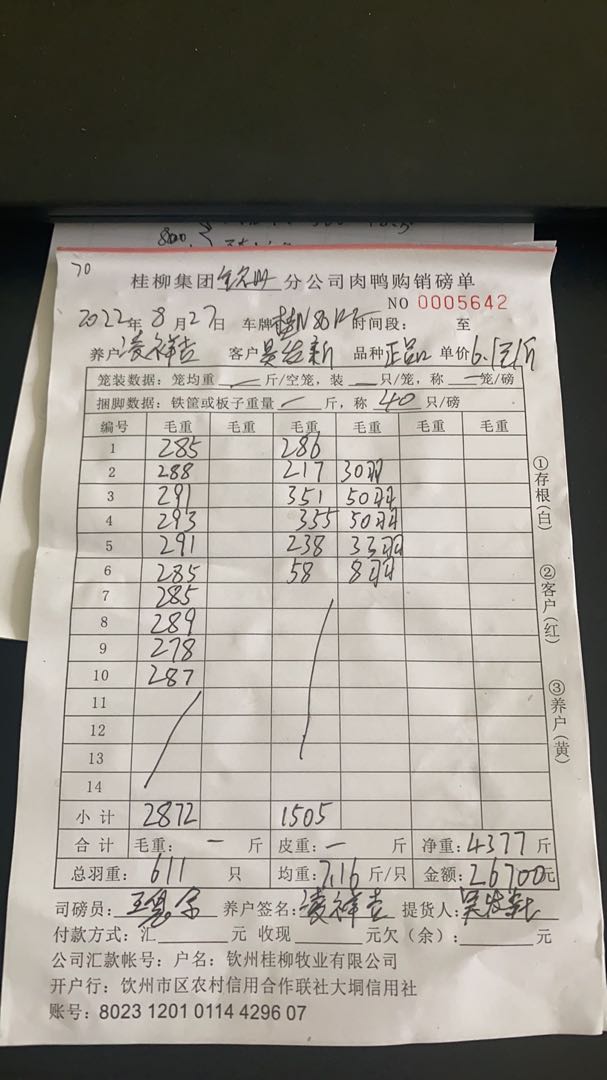 70
桂柳集团 分公司肉鸭购销磅单
NO 0005642
2022年8月27日 车牌 时间段: 至
养户凌祥吉 客户 品种正品 单价6.1元/斤
笼装数据: 笼均重 斤/空笼, 装 只/笼, 称 笼/磅
捆脚数据: 铁筐或板子重量 斤, 称 40 只/磅
编号 毛重 毛重 毛重 毛重 毛重 毛重
1 285 286
2 288 217 30羽
3 291 351 50羽
4 293 355 50羽
5 291 238 33羽
6 285 58 8羽
7 285
8 289
9 278
10 287
11
12
13
14
小计 2872 1505
合计 毛重: 一 斤 皮重: 一 斤 净重: 4377 斤
总羽重: 611 只 均重: 7.16 斤/只 金额: 26700元
司磅员: 养户签名: 凌祥吉 提货人:
付款方式: 汇 元 收现 元欠(余): 元
公司汇款帐号: 户名: 钦州桂柳牧业有限公司
开户行: 钦州市区农村信用合作联社大垌信用社
账号: 8023 1201 0114 4296 07
①存根(白)
②客户(红)
③养户(黄)